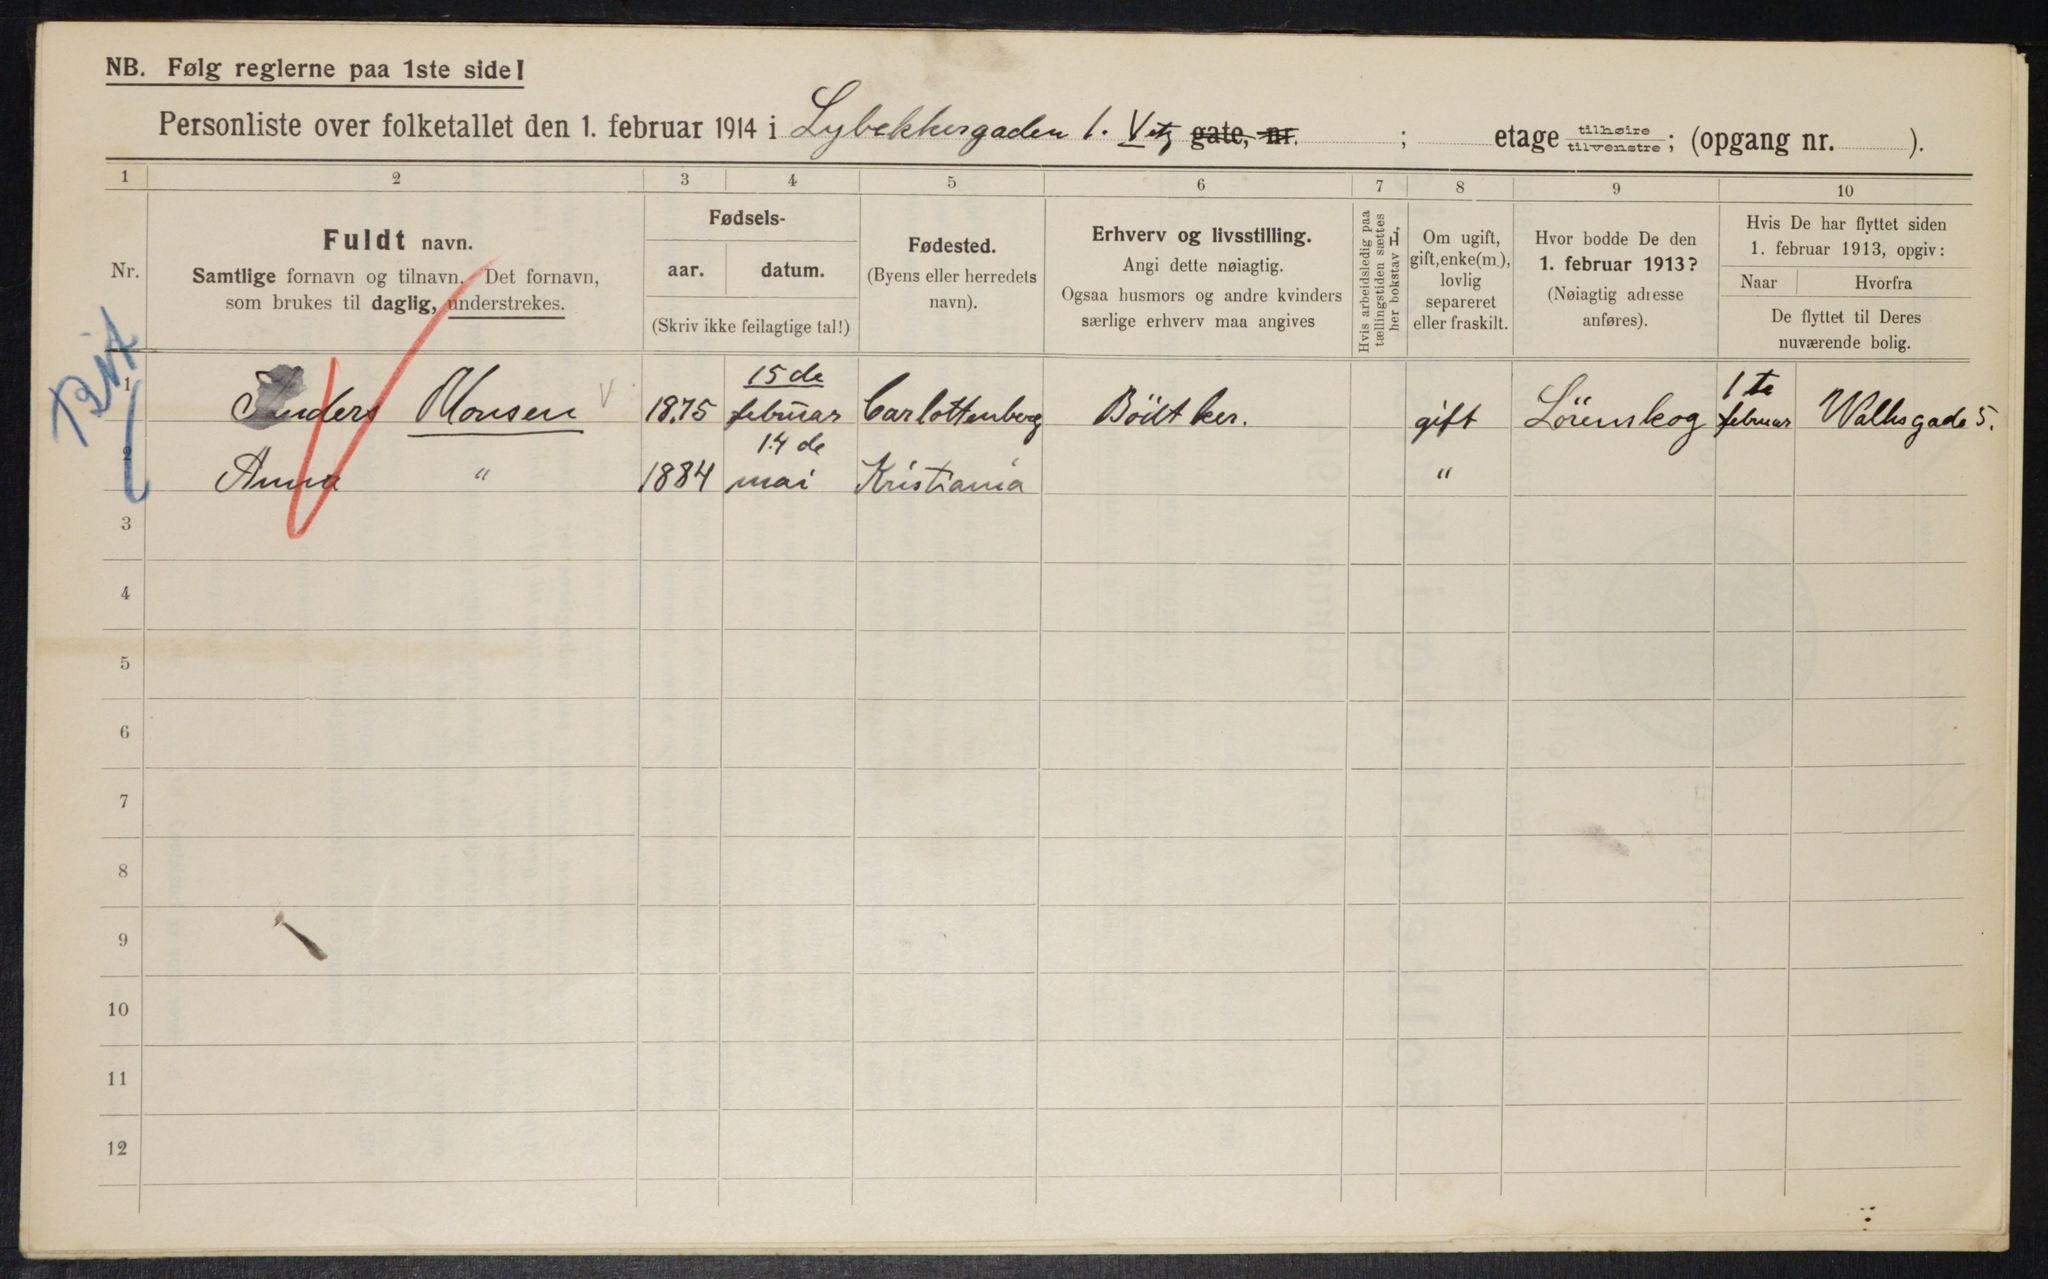 NB. Følg reglerne paa 1ste side!
Personliste over folketallet den 1. februar 1914 i Lybekkergaden 1. gate, nr. ; etage tilhøire tilvenstre; (opgang nr. ).
1 2 3 4 5 6 7 8 9 10
Nr.
Fuldt navn.
Samtlige fornavn og tilnavn. Det fornavn,
som brukes til daglig, understrekes.
Fødsels-
aar. datum.
(Skriv ikke feilagtige tal!)
Fødested.
(Byens eller herredets
navn).
Erhverv og livsstilling.
Angi dette nøiagtig.
Ogsaa husmors og andre kvinders
særlige erhverv maa angives
Hvis arbeidsledig paa
tællingstiden sættes
her bokstav L.
Om ugift,
gift, enke(m.),
lovlig
separeret
eller fraskilt.
Hvor bodde De den
1. februar 1913?
(Nøiagtig adresse
anføres).
Hvis De har flyttet siden
1. februar 1913, opgiv:
Naar Hvorfra
De flyttet til Deres
nuværende bolig.
1 Anders Monsen 1875 15de februar Carlottenberg Bödtker. gift Lörenskog 1te februar Valksgade 5.
2 Anna " 1884 14de mai Kristiania "
3
4
5
6
7
8
9
10
11
12